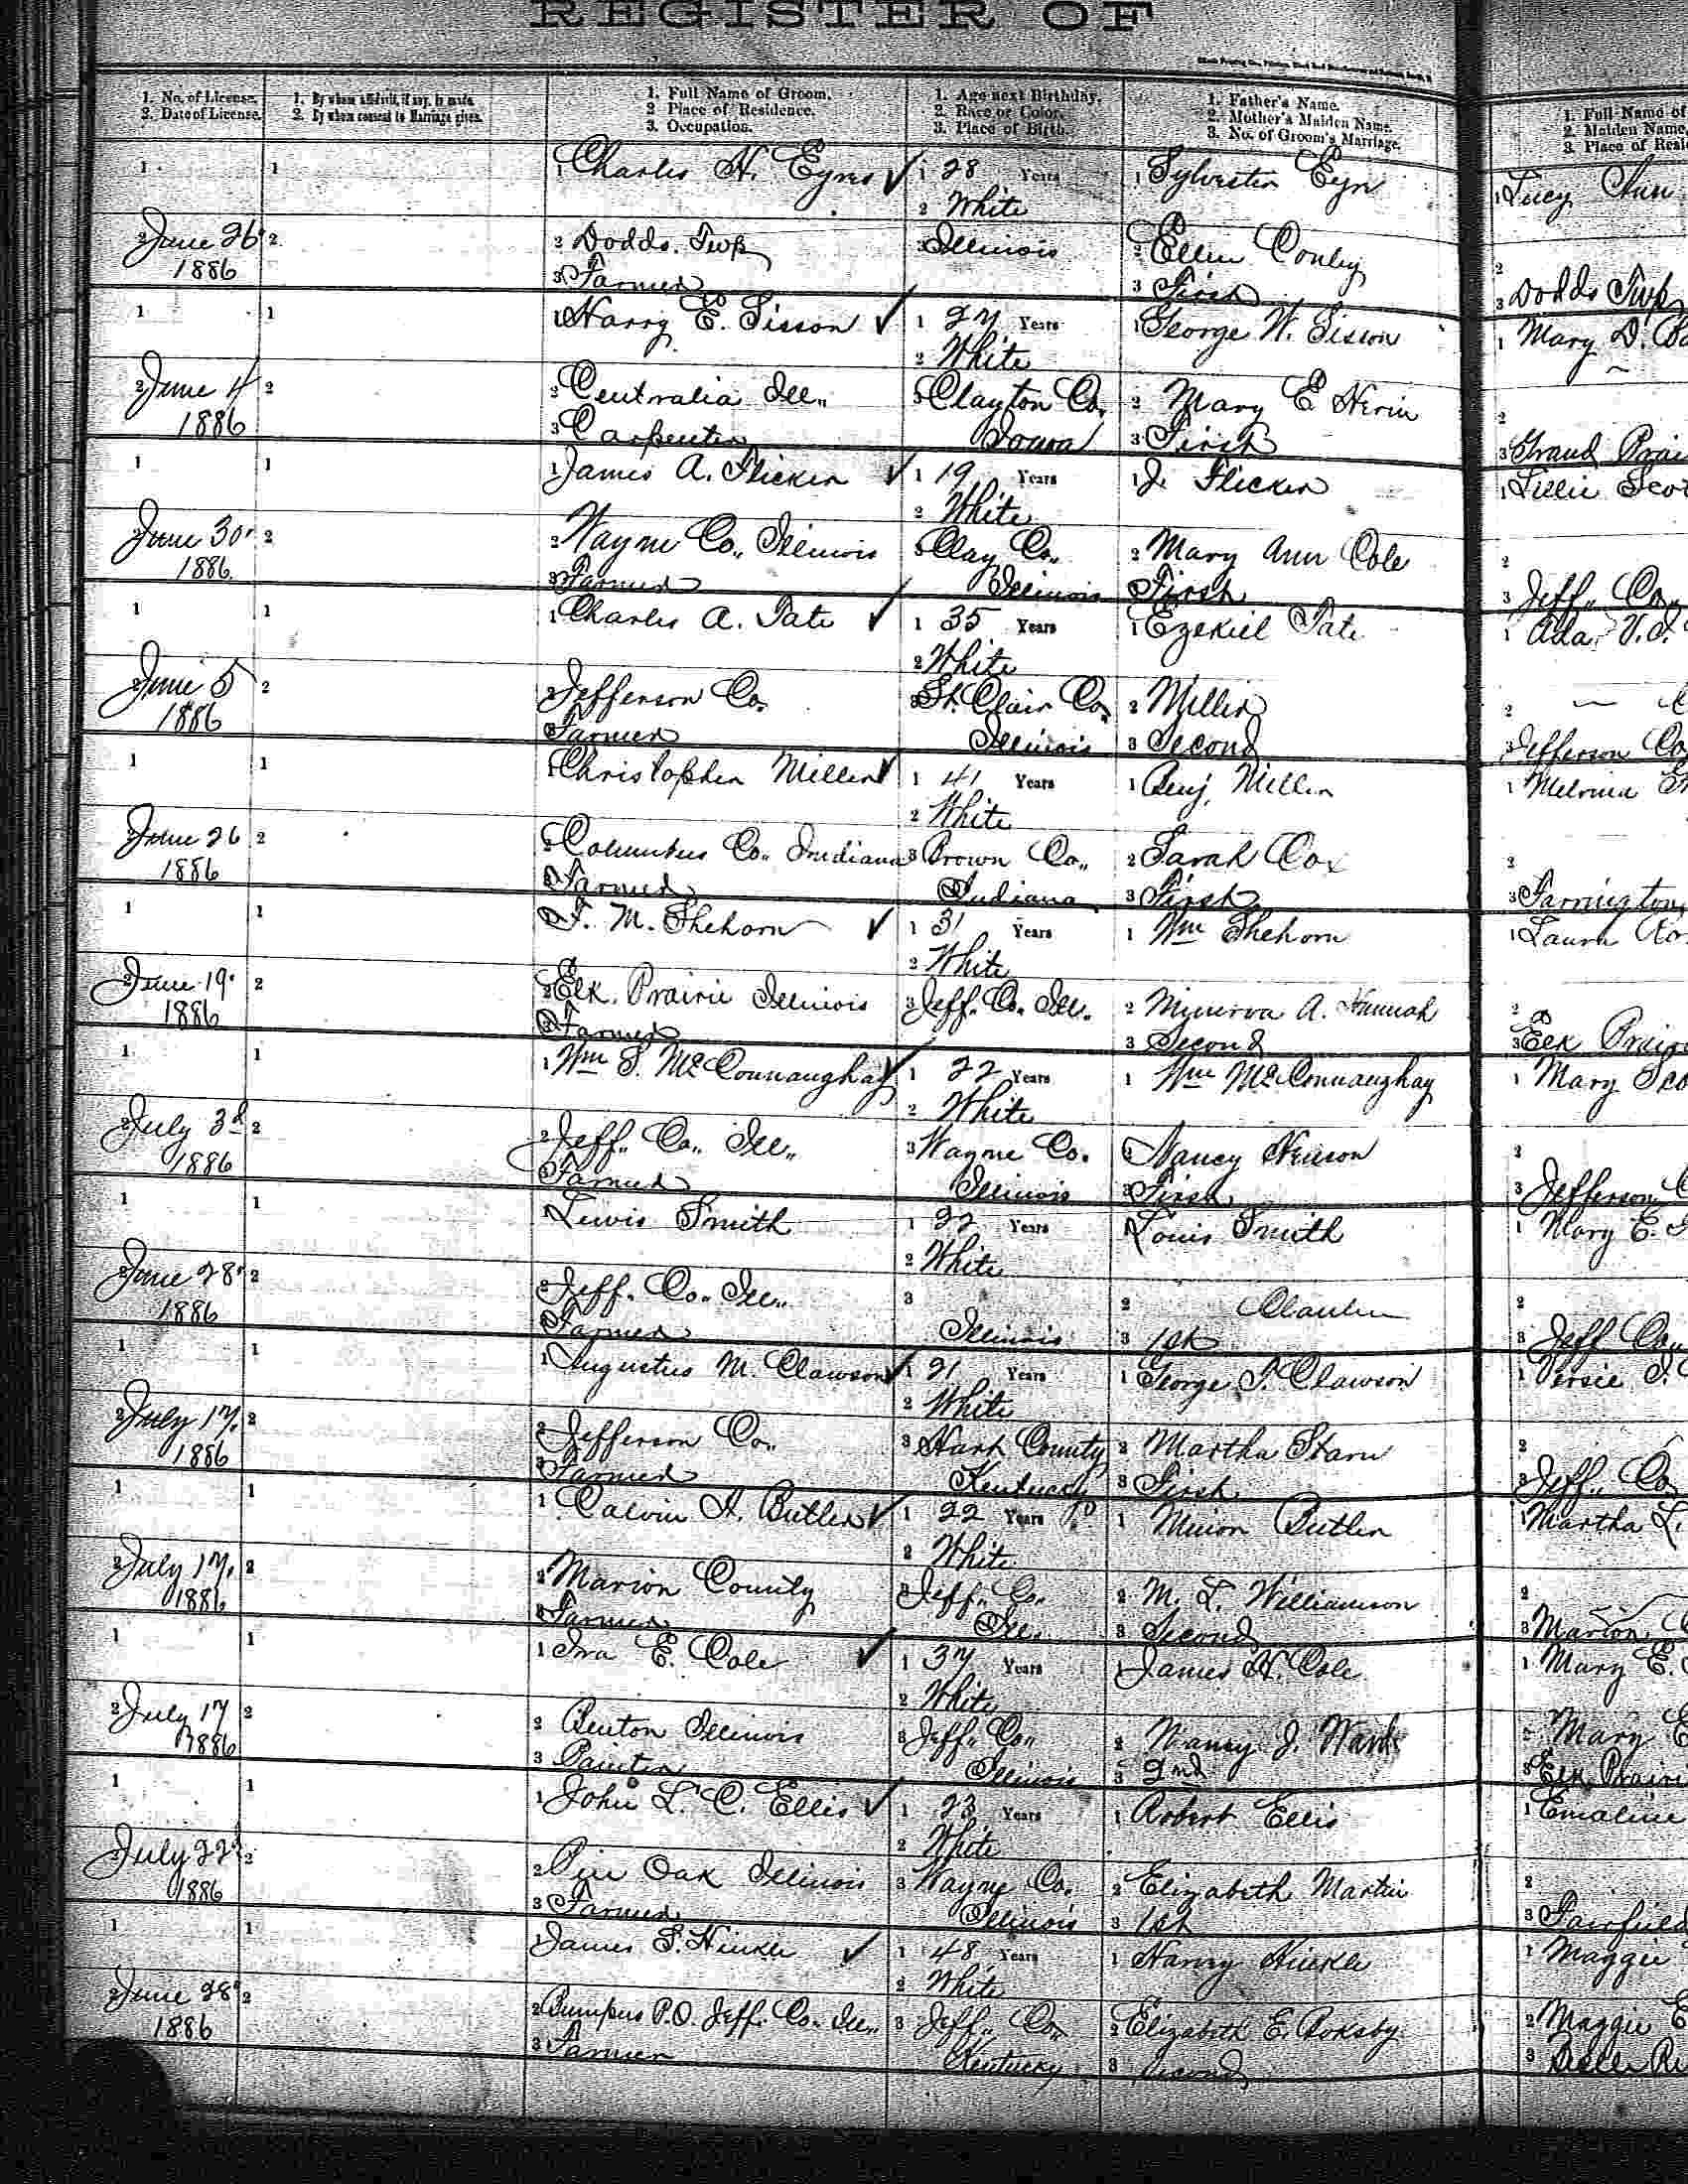 REGISTER OF
1. No. of License.
2. Date of License.
1. By whom affidavit, if any, is made.
2. By whom consent to Marriage given.
1. Full Name of Groom.
2 Place of Residence.
3. Occupation.
1. Age next Birthday.
2. Race or Color.
3. Place of Birth.
1. Father's Name.
2. Mother's Maiden Name.
3. No. of Groom's Marriage.
1. Full Name of
2. Maiden Name,
3. Place of Resi
1 1 1 Charles H. Eyres ✓ 1 28 Years 1 Sylvester Eyre 1 Lucy Ann
2 White
2 June 26 2 2 Dodds. Twp 3 Illinois 2 Ellen Conley 2
1886 3 Farmer 3 First 3 Dodds Twp
1 1 1 Harry E. Sisson ✓ 1 27 Years 1 George W. Sisson 1 Mary D.
2 White
2 June 4 2 2 Centralia Ill. 3 Clayton Co. 2 Mary E 2
1886 3 Carpenter Iowa 3 First 3 Grand Prai
1 1 1 James A. Flicker ✓ 1 19 Years 1 J. Flicker 1 Lillie Scot
2 White
2 June 30 2 2 Wayne Co., Illinois 3 Clay Co. 2 Mary Ann Cole 2
1886 3 Farmer Illinois 3 First 3 Jeff. Co.
1 1 1 Charles A. Tate ✓ 1 35 Years 1 Ezekiel Tate 1 Ada. V.
2 White
2 June 5 2 2 Jefferson Co. 3 St. Clair Co. 2 Miller 2
1886 3 Farmer Illinois 3 Second 3 Jefferson Co
1 1 1 Christopher Miller ✓ 1 41 Years 1 Benj. Miller 1
2 White
2 June 26 2 2 Columbus Co. Indiana 3 Brown Co., 2 Sarah Cox 2
1886 3 Farmer Indiana 3 First 3 Farrington,
1 1 1 F. M. Shehorn ✓ 1 31 Years 1 Wm Shehorn 1 Laura
2 White
2 June 19. 2 2 Elk Prairie Illinois 3 Jeff. Co. Ill. 2 Minerva A. Hannah 2
1886 3 Farmer 3 Second 3 Elk Prairi
1 1 1 Wm S. McConnaughay ✓ 1 22 Years 1 Wm McConnaughay 1 Mary Sco
2 White
2 July 3d 2 2 Jeff. Co. Ill. 3 Wayne Co. 2 Nancy Henson 2
1886 3 Farmer Illinois 3 First 3 Jefferson
1 1 1 Lewis Smith 1 22 Years 1 Louis Smith 1 Mary E.
2 White
2 June 28. 2 2 Jeff. Co. Ill. 3 2 2
1886 3 Farmer Illinois 3 1st 3 Jeff Co.
1 1 1 Augustus M. Clawson ✓ 1 21 Years 1 George T. Clawson 1
2 White
2 July 17. 2 2 Jefferson Co. 3 Hart County 2 Martha Starn 2
1886 3 Farmer Kentucky 3 First 3 Jeff. Co
1 1 1 Calvin A. Butler ✓ 1 22 Years 1 Butler 1 Martha L.
2 White
2 July 17. 2 2 Marion County 3 Jeff. Co. 2 M. L. Williamson 2
1886 3 Farmer Ill. 3 Second 3 Marion
1 1 1 Ira E. Cole ✓ 1 37 Years 1 James H. Cole 1 Mary E.
2 White
2 July 17 2 2 Benton Illinois 3 Jeff. Co. 2 Nancy J. Ward 2 Mary
1886 3 Painter Illinois 3 2nd 3 Elk Prairi
1 1 1 John L. C. Ellis ✓ 1 23 Years 1 Robert Ellis 1 Emaline
2 White
2 July 22d 2 2 Pin Oak Illinois 3 Wayne Co. 2 Elizabeth Martin 2
1886 3 Farmer Illinois 3 1st 3 Fairfield
1 1 1 James S. Hinkle ✓ 1 48 Years 1 Hinkle 1 Maggie
2 White
2 June 28 2 2 Bumpus P.O. Jeff. Co. Ill. 3 Jeff. Co. 2 Elizabeth E. Roksby 2 Maggie E
1886 3 Farmer Kentucky 3 Second 3